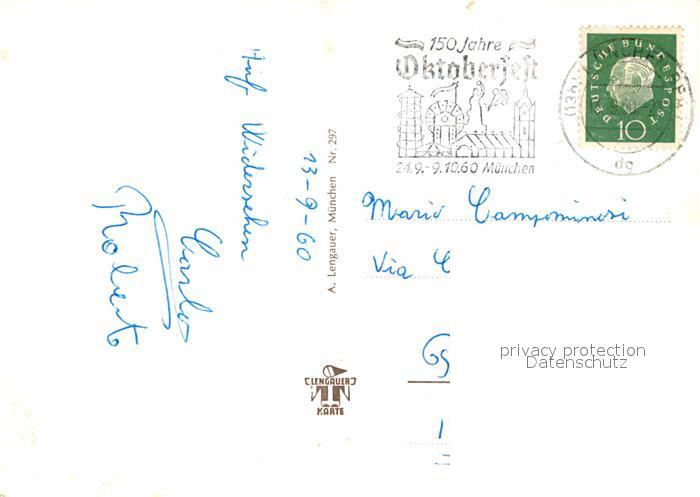 150 Jahre
Oktoberfest
24.9.-9.10.60 München
DEUTSCHE BUNDESPOST
10
(13b) MÜNCHEN
dg
Auf Widersehen
13-9-60
Carlo
Roberto
A. Lengauer, München Nr. 297
LENGAUER
KARTE
Mario Campominosi
Via C
privacy protection
Datenschutz